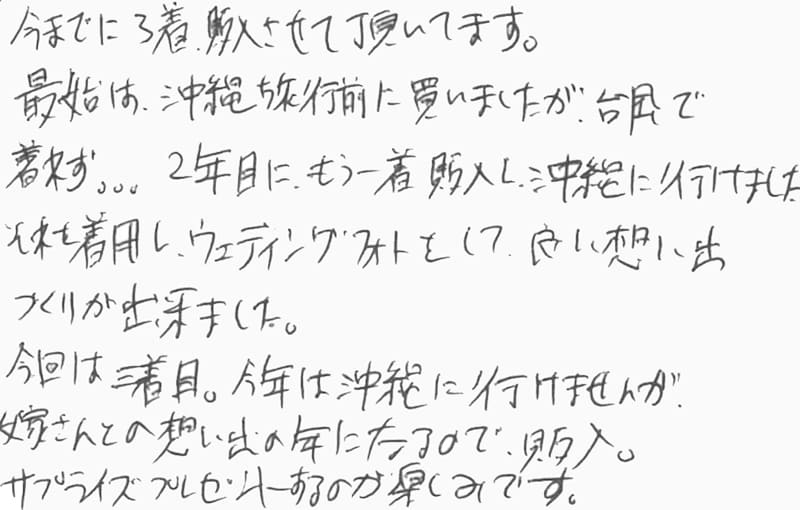 今までに3着、販入させて頂いてます。
最始は、沖縄旅行前に買いましたが、台風で
着れず。。。2年目に、もう一着販入し、沖縄に行けました
それを着用し、ウェディングフォトをして、良い想い出
づくりが出来ました。
今回は三着目。今年は沖縄に行けませんが、
嫁さんとの想い出の年になるので、販入。
サプライズプレゼントするのが楽しみです。